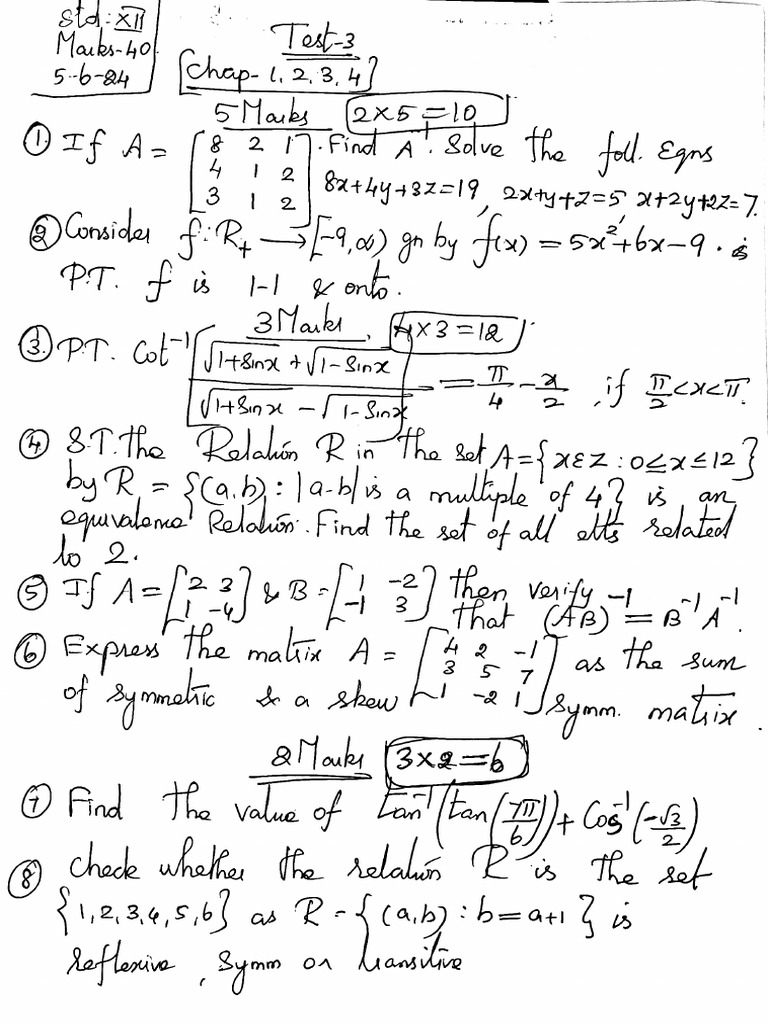 Std: XII
Marks-40
5-6-24
Test-3
Chap- 1, 2, 3, 4
5 Marks 2×5=10
① If A = [8 2 1; 4 1 2; 3 1 2]. Find A⁻¹. Solve the foll. Eqns
8x+4y+3z=19, 2x+y+z=5, x+2y+2z=7.
② Consider f: R₊ → [-9,∞) gn by f(x) = 5x²+6x-9. is
P.T. f is 1-1 & onto.
3 Marks 4×3=12
③ P.T. Cot⁻¹ [(√1+Sinx + √1-Sinx)/(√1+Sinx - √1-Sinx)] = π/4 - x/2, if π/2<x<π.
④ S.T. the Relation R in the set A={x∈Z : 0≤x≤12}
by R = {(a,b) : |a-b| is a multiple of 4} is an
equivalence Relation. Find the set of all elts related
to 2.
⑤ If A = [2 3; 1 -4] & B = [1 -2; -1 3] then verify
that (AB)⁻¹ = B⁻¹A⁻¹.
⑥ Express the matrix A = [4 2 -1; 3 5 7; 1 -2 1] as the sum
of symmetric & a skew symm. matrix.
2 Marks 3×2=6
⑦ Find the value of tan⁻¹(tan(7π/6)) + Cos⁻¹(-√3/2)
⑧ check whether the relation R is the set
{1,2,3,4,5,6} as R = {(a,b) : b=a+1} is
reflexive, symm or transitive